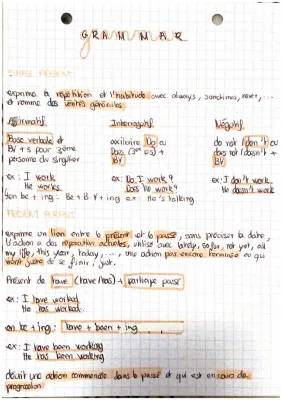 GRAMMAR
SIMPLE PRESENT
exprime la répétition et l'habitude avec always, sometimes, never, ...
et comme des vérités générales
Affirmatif Interrogatif Négatif
Base verbale et auxiliaire Do ou do not / don't ou
BV + s pour 3ème Does (3ème ps) + does not / doesn't +
personne du singulier BV BV
ex: I work ex: Do I work? ex: I don't work.
He works Does he work? He doesn't work
en be + ing: Be + BV + ing ex: He's talking
PRESENT PERFECT
exprime un lien entre le présent et le passé, sans préciser la date,
L'action a des répercution actuelles, utilisé avec lately, so far, not yet, all
my life, this year, today, ..., une action pas encore terminée ou qui
vient juste de se finir, just.
Présent de have (have/has) + participe passé
ex: I have worked
He has worked
en be + ing: have + been + ing
ex: I have been working
He has been walking
décrit une action commencée dans le passé et qui est en cours de
progression